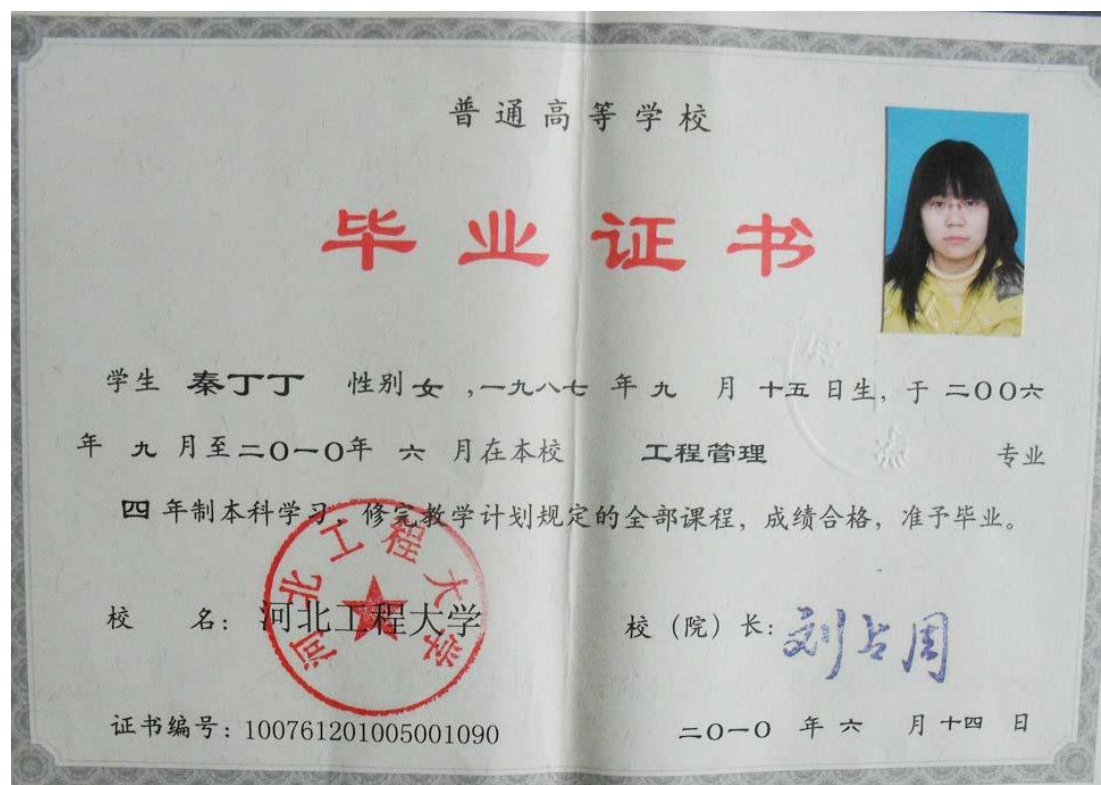 普通高等学校
毕业证书
学生 秦丁丁 性别 女 ,一九八七 年 九 月 十五 日生, 于 二OO六
年 九 月至二O一O年 六 月在本校 工程管理 专业
四 年制本科学习, 修完教学计划规定的全部课程, 成绩合格, 准予毕业。
校 名: 河北工程大学
河北工程大学
校 (院) 长: 刘占周
证书编号: 100761201005001090
二O一O 年 六 月 十四 日